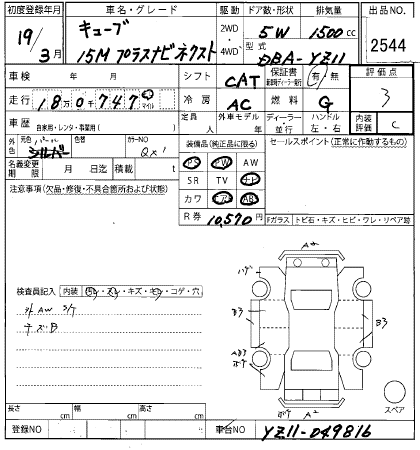 初度登録年月 車名・グレード 駆動 ドア数・形状 排気量 出品NO.
19/3月 キューブ 2WD 5W 1500cc 2544
15M プラスナビネクスト 4WD 型式 DBA-YZ11
車検 年 月 シフト CAT 保証書 有/無 評価点
走行 18万0千747 km マイル 冷房 AC 燃料 G 3
車歴 自家用・レンタ・事業用( ) 定員 人 外車モデル 年 ディーラー・並行 ハンドル 左・右 内装評価 C
外色 元色 シルバー 色替 カラーNO QX1 装備品(純正品に限る) セールスポイント(正常に作動するもの)
名義変更期限 月 日迄 積載 t PS PW AW
注意事項(欠品・修復・不具合箇所および状態) SR TV ナビ
カワ エアB AB
R券 10,570円 Fガラス トビ石・キズ・ヒビ・ワレ・リペア跡
検査員記入 内装
外AW キズ
キズB
ハゲ
B3
B3
スペア
長さ cm 幅 cm 高さ cm
登録NO 車台NO YZ11-049816